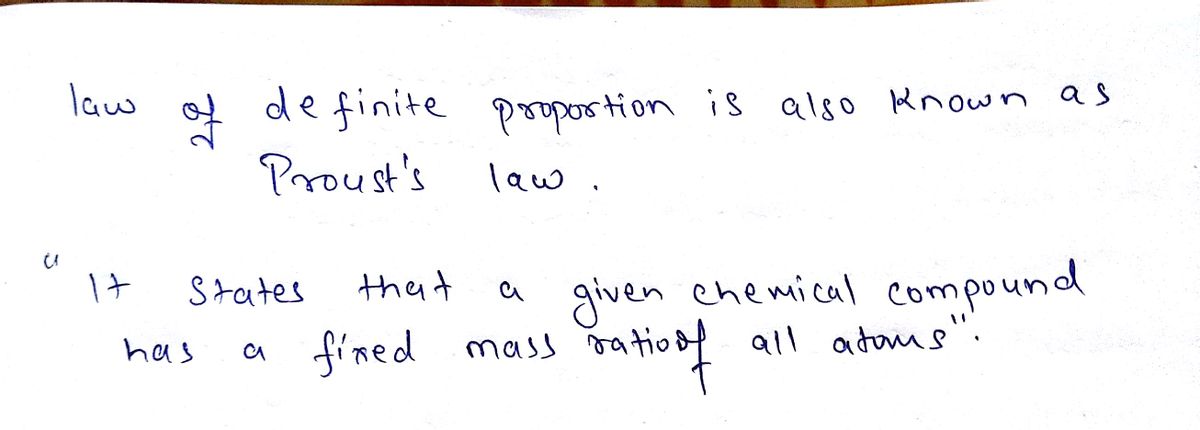 law of definite proportion is also known as
Proust's law.
"It states that a given chemical compound
has a fixed mass ratio of all atoms".